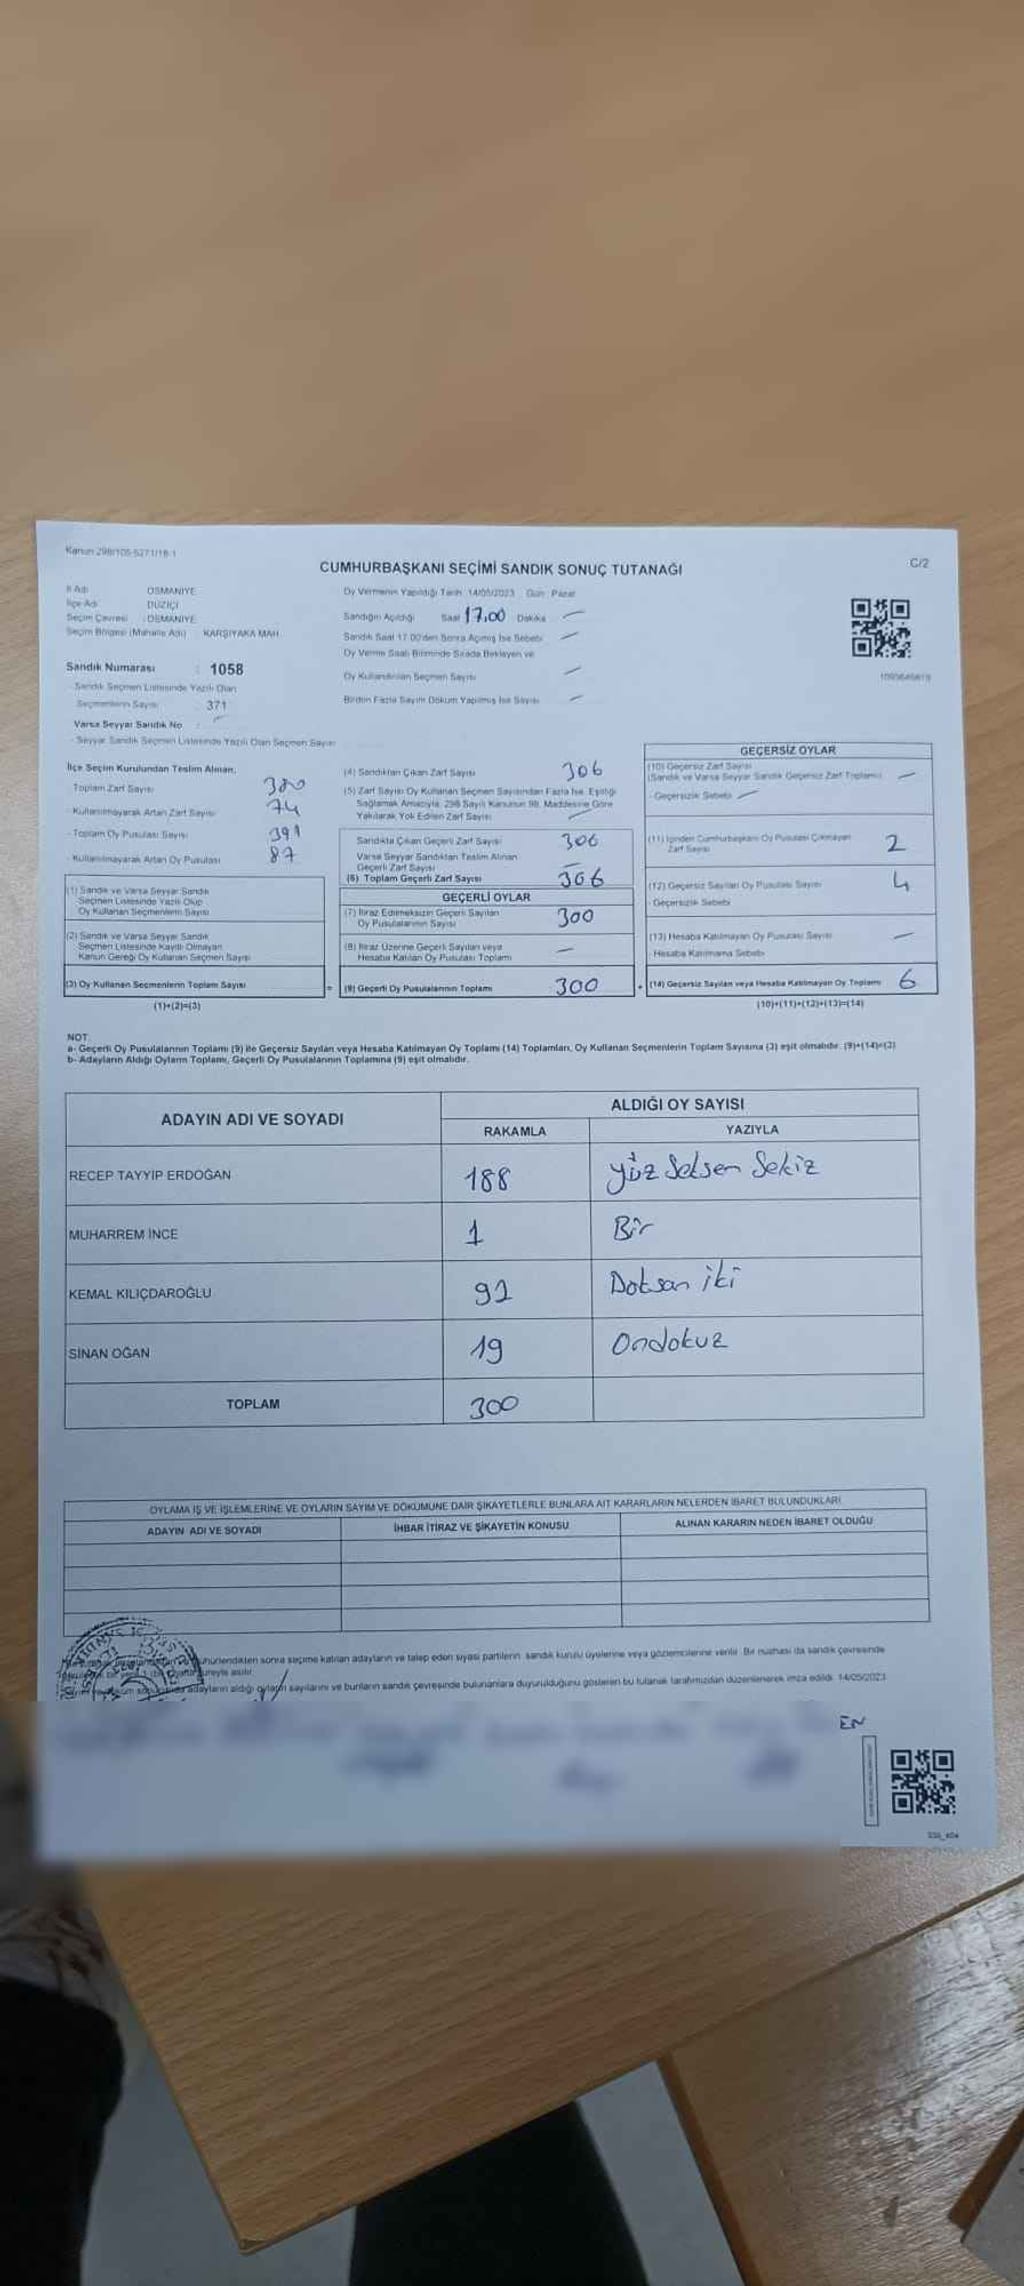 Kanun 298/105-5271/18-1
C/2
CUMHURBAŞKANI SEÇİMİ SANDIK SONUÇ TUTANAĞI
İl Adı OSMANİYE
İlçe Adı DÜZİÇİ
Seçim Çevresi : OSMANİYE
Seçim Bölgesi (Mahalle Adı) KARŞIYAKA MAH.
Sandık Numarası : 1058
Sandık Seçmen Listesinde Yazılı Olan
Seçmenlerin Sayısı 371
Varsa Seyyar Sandık No :
- Seyyar Sandık Seçmen Listesinde Yazılı Olan Seçmen Sayısı
Oy Vermenin Yapıldığı Tarih 14/05/2023 Gün: Pazar
Sandığın Açıldığı Saat 17.00 Dakika —
Sandık Saat 17.00'den Sonra Açılmış İse Sebebi —
Oy Verme Saati Bitiminde Sırada Bekleyen ve
Oy Kullandırılan Seçmen Sayısı —
Birden Fazla Sayım Döküm Yapılmış İse Sayısı —
İlçe Seçim Kurulundan Teslim Alınan;
Toplam Zarf Sayısı 380
- Kullanılmayarak Artan Zarf Sayısı 74
- Toplam Oy Pusulası Sayısı 391
- Kullanılmayarak Artan Oy Pusulası 87
(1) Sandık ve Varsa Seyyar Sandık
Seçmen Listesinde Yazılı Olup
Oy Kullanan Seçmenlerin Sayısı
(2) Sandık ve Varsa Seyyar Sandık
Seçmen Listesinde Kayıtlı Olmayan
Kanun Gereği Oy Kullanan Seçmen Sayısı
(3) Oy Kullanan Seçmenlerin Toplam Sayısı
(1)+(2)=(3)
(4) Sandıktan Çıkan Zarf Sayısı 306
(5) Zarf Sayısı Oy Kullanan Seçmen Sayısından Fazla İse, Eşitliği
Sağlamak Amacıyla, 298 Sayılı Kanunun 98. Maddesine Göre
Yakılarak Yok Edilen Zarf Sayısı —
Sandıkta Çıkan Geçerli Zarf Sayısı 306
Varsa Seyyar Sandıktan Teslim Alınan
Geçerli Zarf Sayısı —
(6) Toplam Geçerli Zarf Sayısı 306
GEÇERLİ OYLAR
(7) İtiraz Edilmeksizin Geçerli Sayılan
Oy Pusulalarının Sayısı 300
(8) İtiraz Üzerine Geçerli Sayılan veya
Hesaba Katılan Oy Pusulası Toplamı —
= (9) Geçerli Oy Pusulalarının Toplamı 300
GEÇERSİZ OYLAR
(10) Geçersiz Zarf Sayısı
(Sandık ve Varsa Seyyar Sandık Geçersiz Zarf Toplamı) —
- Geçersizlik Sebebi —
(11) İçinden Cumhurbaşkanı Oy Pusulası Çıkmayan
Zarf Sayısı 2
(12) Geçersiz Sayılan Oy Pusulası Sayısı 4
- Geçersizlik Sebebi
(13) Hesaba Katılmayan Oy Pusulası Sayısı —
- Hesaba Katılmama Sebebi
+ (14) Geçersiz Sayılan veya Hesaba Katılmayan Oy Toplamı 6
(10)+(11)+(12)+(13)=(14)
NOT:
a- Geçerli Oy Pusulalarının Toplamı (9) ile Geçersiz Sayılan veya Hesaba Katılmayan Oy Toplamı (14) Toplamları, Oy Kullanan Seçmenlerin Toplam Sayısına (3) eşit olmalıdır. (9)+(14)=(3)
b- Adayların Aldığı Oyların Toplamı, Geçerli Oy Pusulalarının Toplamına (9) eşit olmalıdır.
ADAYIN ADI VE SOYADI
ALDIĞI OY SAYISI
RAKAMLA YAZIYLA
RECEP TAYYİP ERDOĞAN 188 yüz Seksen Sekiz
MUHARREM İNCE 1 Bir
KEMAL KILIÇDAROĞLU 92 Doksan iki
SİNAN OĞAN 19 Ondokuz
TOPLAM 300
OYLAMA İŞ VE İŞLEMLERİNE VE OYLARIN SAYIM VE DÖKÜMÜNE DAİR ŞİKAYETLERLE BUNLARA AİT KARARLARIN NELERDEN İBARET BULUNDUKLARI
ADAYIN ADI VE SOYADI İHBAR İTİRAZ VE ŞİKAYETİN KONUSU ALINAN KARARIN NEDEN İBARET OLDUĞU
mühürlendikten sonra seçime katılan adayların ve talep eden siyasi partilerin sandık kurulu üyelerine veya gözlemcilerine verilir. Bir nüshası da sandık çevresinde
süreyle asılır.
adayların aldığı oyların sayılarını ve bunların sandık çevresinde bulunanlara duyurulduğunu gösteren bu tutanak tarafımızdan düzenlenerek imza edildi. 14/05/2023
EN